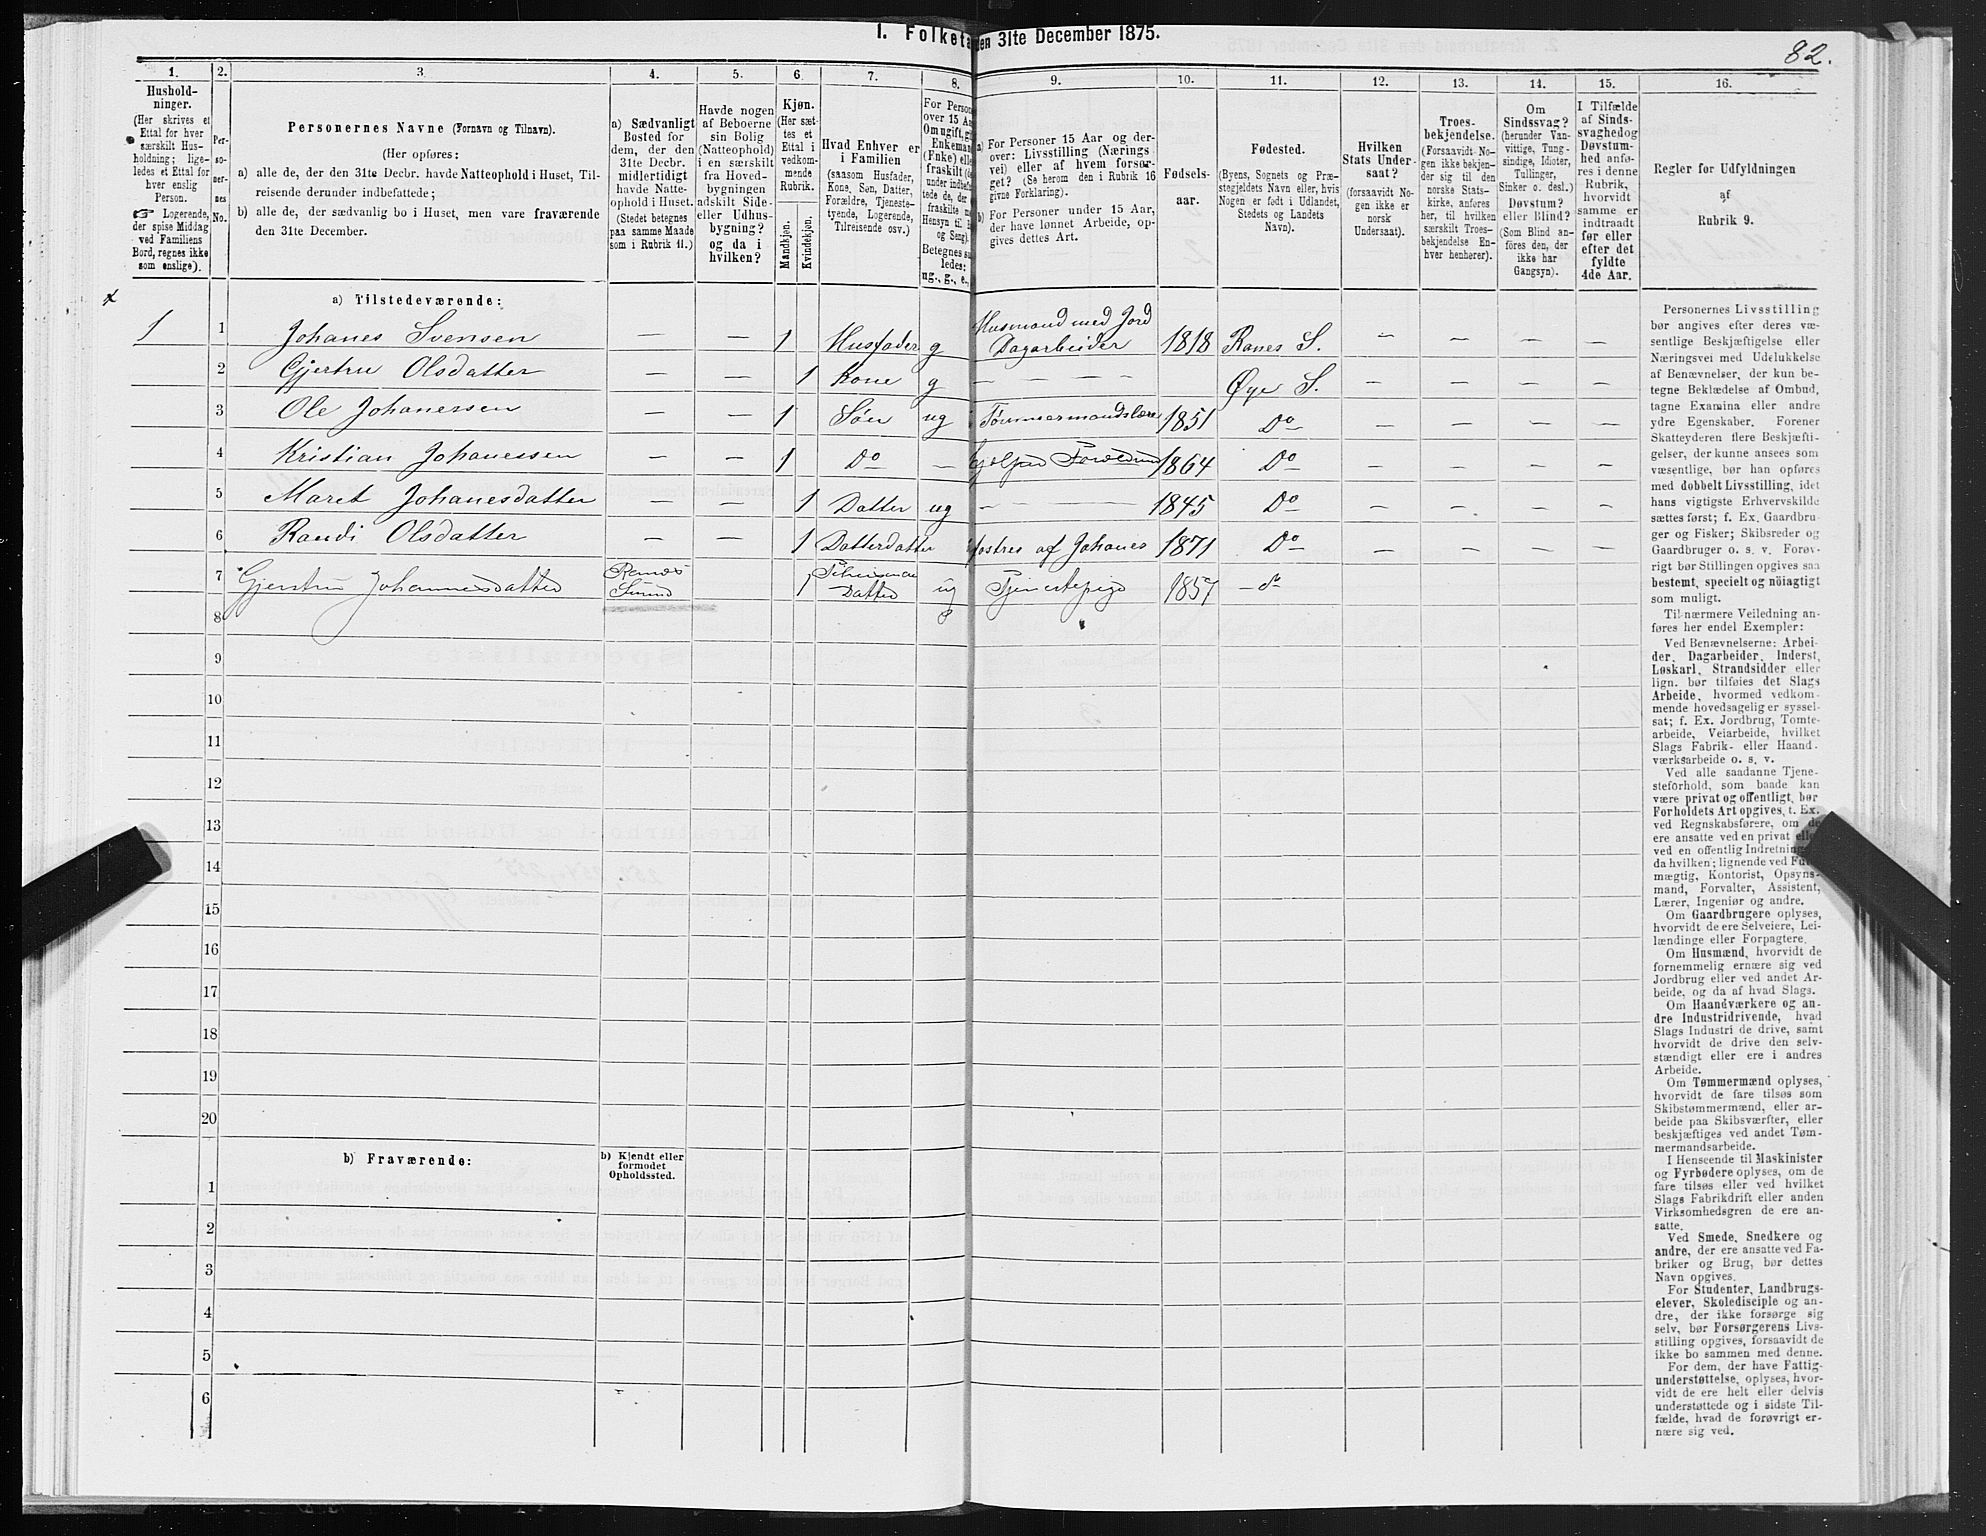 1. Folketa
den 31te December 1875.
82.
1.
2.
3.
4.
5.
6.
7.
8.
9.
10.
11.
12.
13.
14.
15.
16.
Hushold-
ninger.
(Her skrives et
Ettal for hver
særskilt Hus-
holdning; lige-
ledes et Ettal for
hver enslig
Person.
☞ Logerende,
der spise Middag
ved Familiens
Bord, regnes ikke
som enslige).
Per-
so-
ner-
nes
No.
Personernes Navne (Fornavn og Tilnavn).
(Her opføres:
a) alle de, der den 31te Decbr. havde Natteophold i Huset, Til-
reisende derunder indbefattede;
b) alle de, der sædvanlig bo i Huset, men vare fraværende
den 31te December.
a) Sædvanligt
Bosted for
dem, der den
31te Decbr.
midlertidigt
havde Natte-
ophold i Huset.
(Stedet betegnes
paa samme Maade
som i Rubrik 11.)
Havde nogen
af Beboerne
sin Bolig
(Natteophold)
i en særskilt
fra Hoved-
bygningen
adskilt Side-
eller Udhus-
bygning?
og da i
hvilken?
Kjøn.
(Her sæt-
tes et
Ettal i
vedkom-
mende
Rubrik.
Mandkjøn.
Kvindekjøn.
Hvad Enhver er
i Familien
(saasom Husfader,
Kone, Søn, Datter,
Forældre, Tjeneste-
tyende, Logerende,
Tilreisende osv.)
For Person
over 15 Aa
Om ugift, gi
Enkemand
(Enke) elle
fraskilt (de
under indbef
tede de, der
fraskilte m
Hensyn til B
og Seng).
Betegnes saa
ledes:
ug., g., e.,
a) For Personer 15 Aar og der-
over: Livsstilling (Nærings
vei) eller af hvem forsør-
get? (Se herom den i Rubrik 16
givne Forklaring).
b) For Personer under 15 Aar,
der have lønnet Arbeide, op-
gives dettes Art.
Fødsels-
aar.
Fødested.
(Byens, Sognets og Præ-
stegjeldets Navn eller, hvis
Nogen er født i Udlandet,
Stedets og Landets
Navn).
Hvilken
Stats Under-
saat?
(forsaavidt No-
gen ikke er
norsk
Undersaat).
Troes-
bekjendelse.
(Forsaavidt No-
gen ikke bekjen-
der sig til den
norske Stats-
kirke, anføres
her, til hvilken
særskilt Troes-
bekjendelse En-
hver henhører).
Om
Sindssvag?
(herunder Van-
vittige, Tung-
sindige, Idioter,
Tullinger,
Sinker o. desl.)
Døvstum?
eller Blind?
(Som Blind an-
føres den, der
ikke har
Gangsyn).
I Tilfælde
af Sinds-
svaghed og
Døvstum-
hed anfø-
res i denne
Rubrik,
hvorvidt
samme er
indtraadt
før eller
efter det
fyldte
4de Aar.
Regler for Udfyldningen
af
Rubrik 9.
a) Tilstedeværende:
1 1 Johanes Svensen — — 1 Husfader g Husmand med Jord
Dagarbeider 1818 Ranes S. — — — —
2 Gjertru Olsdatter — — 1 Kone g — — — — Øye S. — — — —
3 Ole Johanessen — — 1 Søn ug Tømmermandslære 1851 Do — — — —
4 Kristian Johanessen — — 1 Do — hjelper Foreldrene 1864 Do — — — —
5 Maret Johanesdatter — — 1 Datter ug — 1845 Do — — — —
6 Randi Olsdatter — — 1 Datterdatter fostres af Johanes 1871 Do — — — —
7 Gjertru Johannesdatter Ranes 1 Datter ug Tjenestepige 1857 — do
8
9
10
11
12
13
14
15
16
17
18
19
20
b) Fraværende:
b) Kjendt eller
formodet
Opholdssted.
1
2
3
4
5
6
Personernes Livsstilling
bør angives efter deres væ-
sentlige Beskjæftigelse eller
Næringsvei med Udelukkelse
af Benævnelser, der kun be-
tegne Beklædelse af Ombud,
tagne Examina eller andre
ydre Egenskaber. Forener
Skatteyderen flere Beskjæfti-
gelser, der kunne ansees som
væsentlige, bør han opføres
med dobbelt Livsstilling, idet
hans vigtigste Erhvervskilde
sættes først; f. Ex. Gaardbru-
ger og Fisker; Skibsreder og
Gaardbruger o. s. v. Forøv-
rigt bør Stillingen opgives saa
bestemt, specielt og nøiagtigt
som muligt.
Til nærmere Veiledning an-
føres her endel Exempler:
Ved Benævnelserne: Arbei-
der, Dagarbeider, Inderst,
Løskarl, Strandsidder eller
lign. bør tilføies det Slags
Arbeide, hvormed vedkom-
mende hovedsagelig er syssel-
sat; f. Ex. Jordbrug, Tomte-
arbeide, Veiarbeide, hvilket
Slags Fabrik- eller Haand-
værksarbeide o. s. v.
Ved alle saadanne Tjene-
steforhold, som baade kan
være privat og offentligt, bør
Forholdets Art opgives, t. Ex.
ved Regnskabsførere, om de
ere ansatte ved en privat eller
ved en offentlig Indretning
da hvilken; lignende ved Fuld-
mægtig, Kontorist, Opsyns-
mand, Forvalter, Assistent,
Lærer, Ingeniør og andre.
Om Gaardbrugere oplyses,
hvorvidt de ere Selveiere, Lei-
lændinge eller Forpagtere.
Om Husmænd, hvorvidt de
fornemmelig ernære sig ved
Jordbrug eller ved andet Ar-
beide, og da af hvad Slags.
Om Haandværkere og an-
dre Industridrivende, hvad
Slags Industri de drive, samt
hvorvidt de drive den selv-
stændigt eller ere i andres
Arbeide.
Om Tømmermænd oplyses,
hvorvidt de fare tilsøs som
Skibstømmermænd, eller ar-
beide paa Skibsværfter, eller
beskjæftiges ved andet Tøm-
mermandsarbeide.
I Henseende til Maskinister
og Fyrbødere oplyses, om de
fare tilsøs eller ved hvilket
Slags Fabrikdrift eller anden
Virksomhedsgren de ere an-
satte.
Ved Smede, Snedkere og
andre, der ere ansatte ved Fa-
briker og Brug, bør dettes
Navn opgives.
For Studenter, Landbrugs-
elever, Skoledisciple og an-
dre, der ikke forsørge sig
selv, bør Forsørgerens Livs-
stilling opgives, forsaavidt de
ikke bo sammen med denne.
For dem, der have Fattig-
understøttelse, oplyses, hvor-
vidt de ere helt eller delvis
understøttede og i sidste Til-
fælde, hvad de forøvrigt er-
nære sig ved.